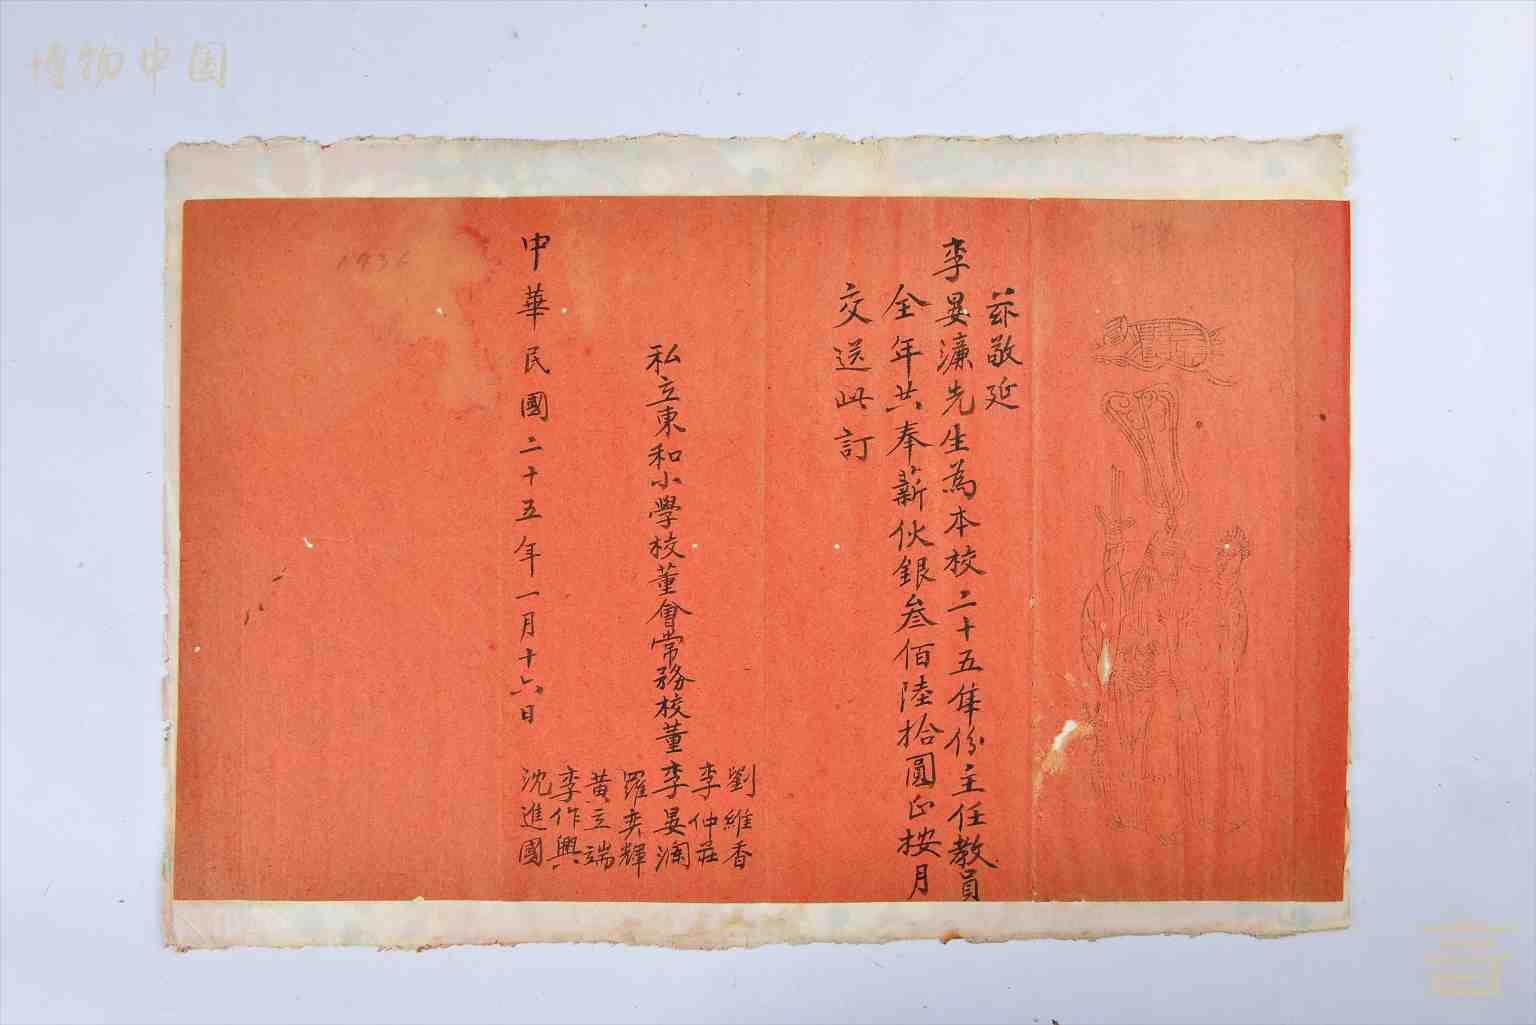 茲敬延
李晏濂先生為本校二十五年份主任教員
全年共奉薪伙銀叁佰陸拾圓正按月
交送此訂
私立東和小學校董會常務校董
劉維香
李仲莊
李晏瀾
羅奕輝
黃立端
李作興
沈進國
中華民國二十五年一月十六日
1936
博物中国